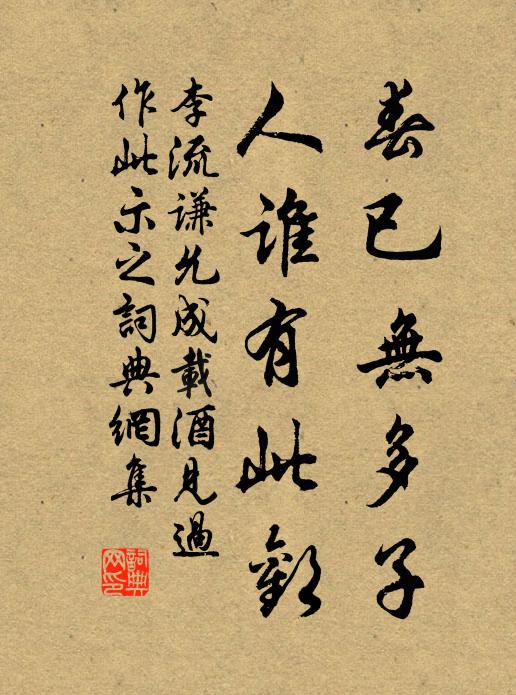 春已無多子
人誰有此歡
李流謙允成載酒見過
作此示之詞典網集
詞典
网印